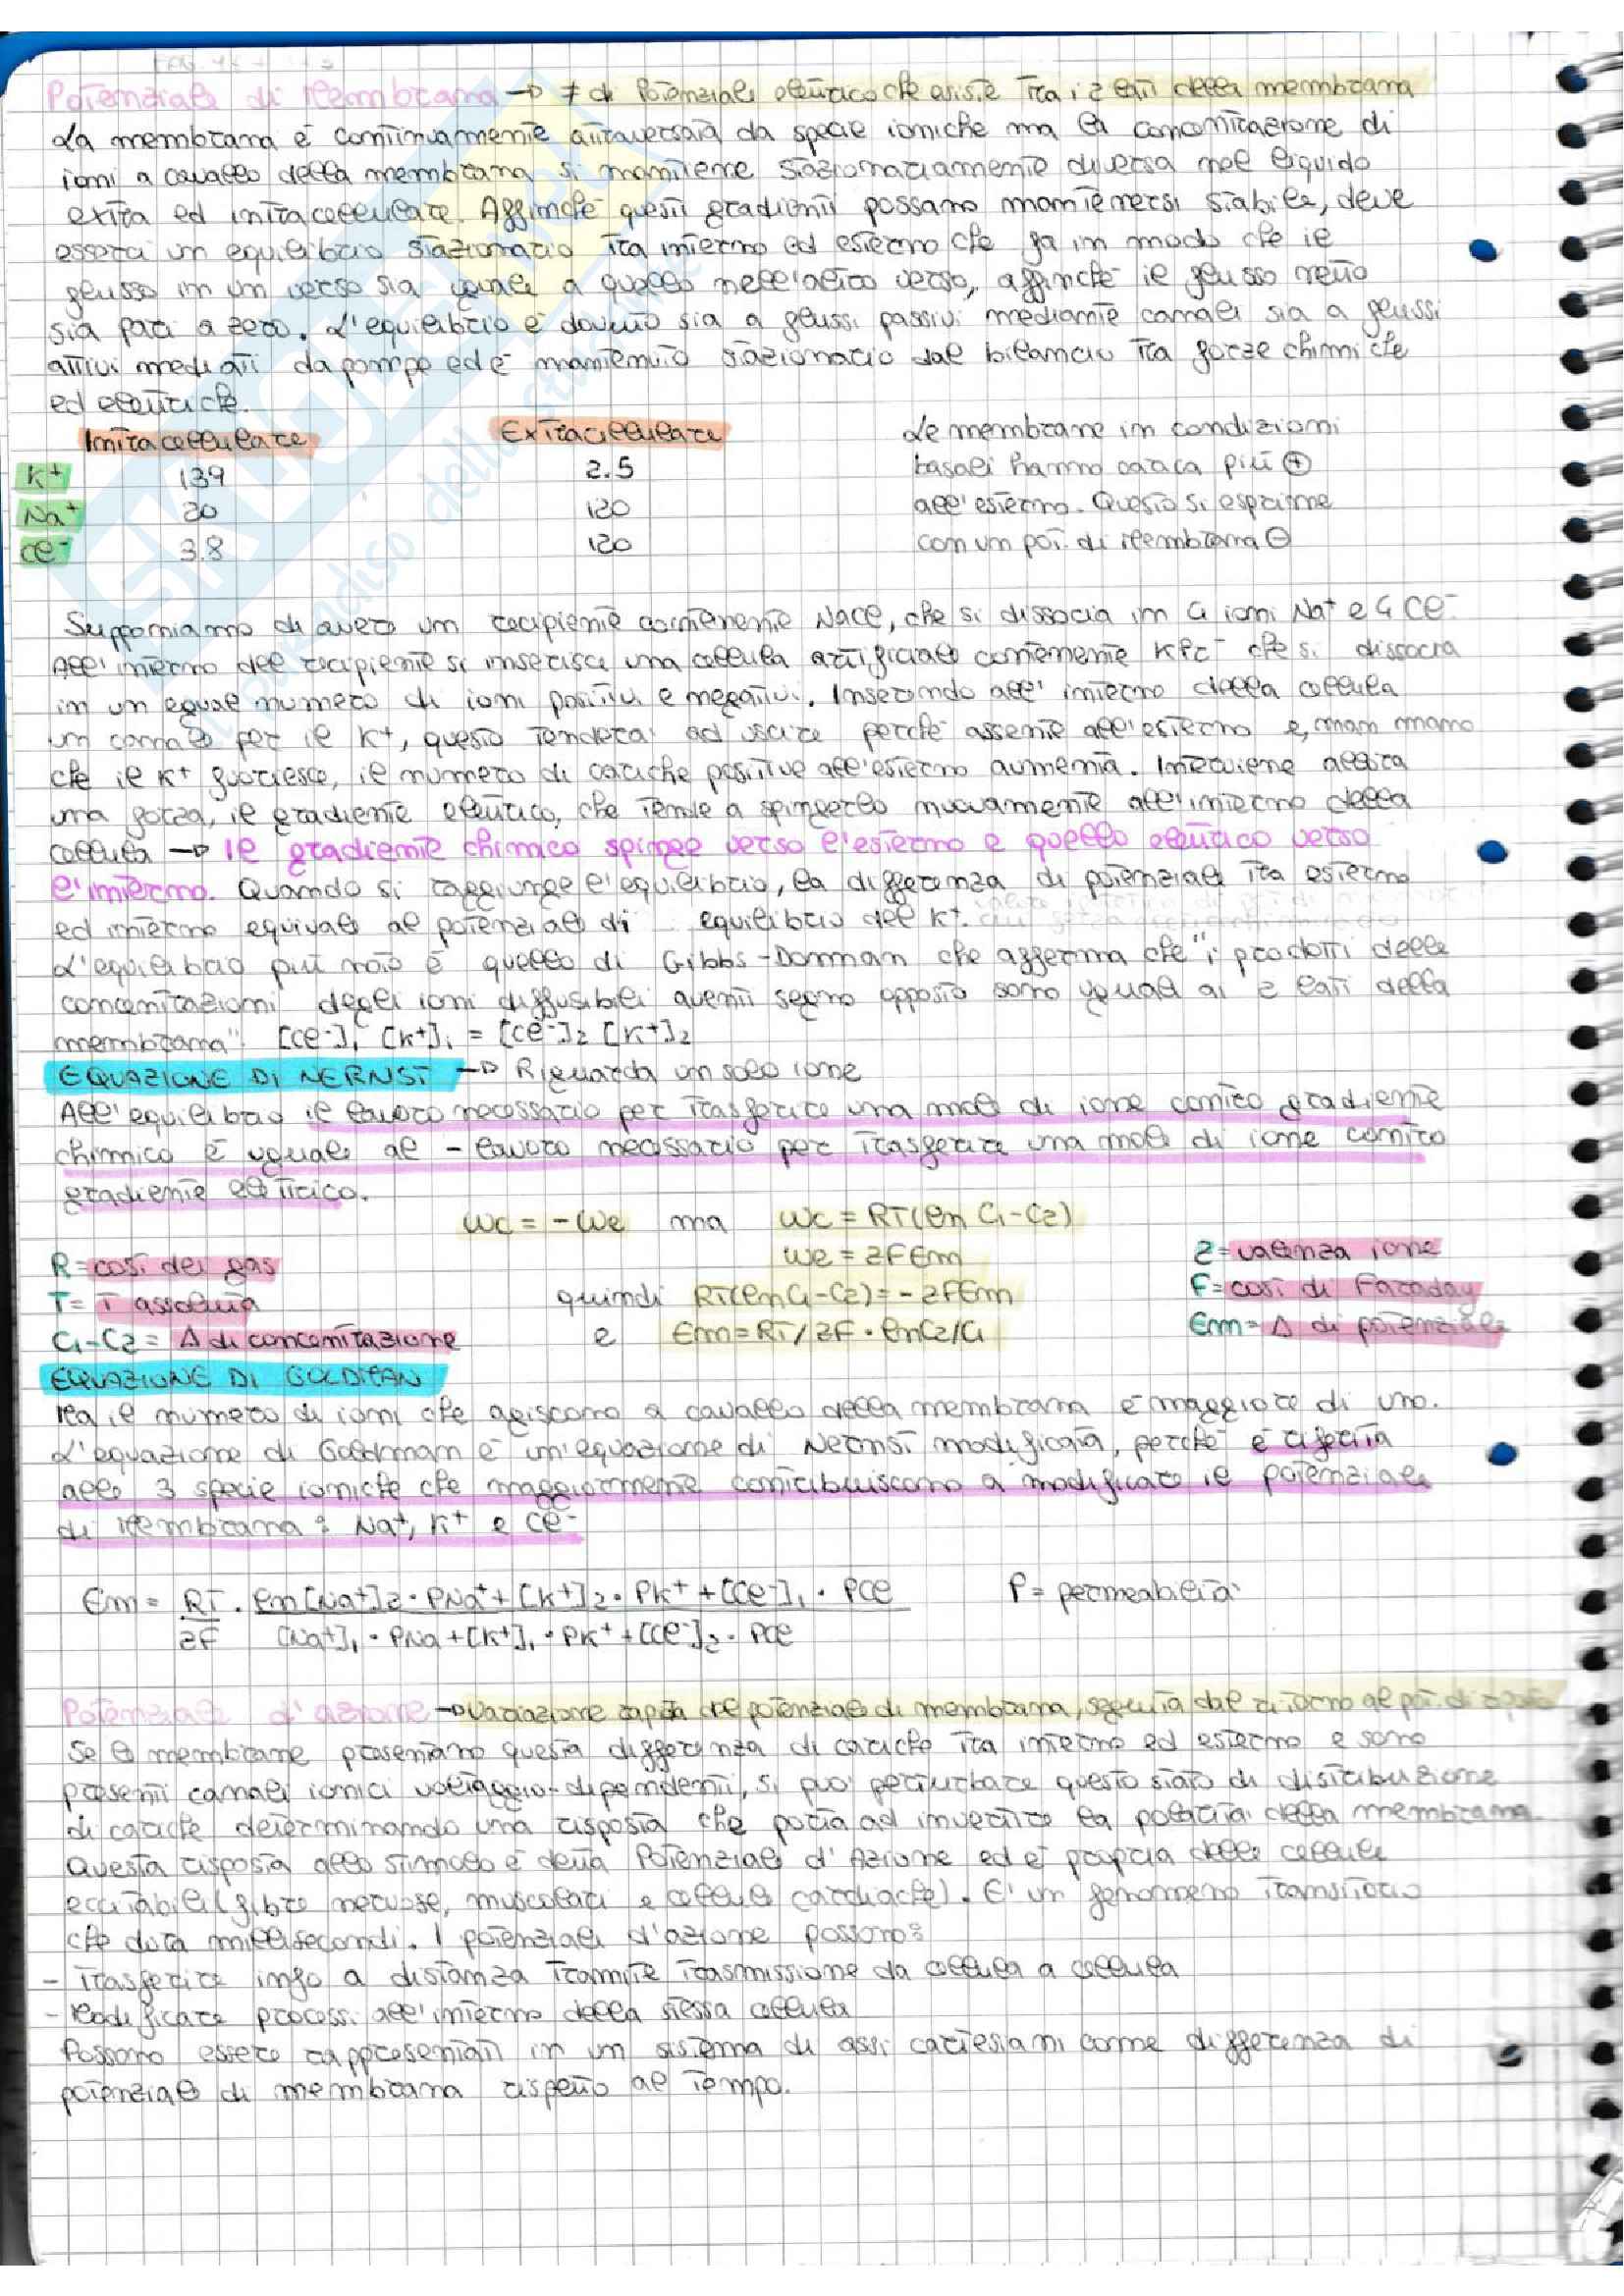 Potenziale di Membrana → ≠ di Potenziale elettrico che esiste tra i 2 lati della membrana
La membrana è continuamente attraversata da specie ioniche ma la concentrazione di
ioni a cavallo della membrana si mantiene stazionariamente diversa nel liquido
extra ed intracellulare. Affinché questi gradienti possano mantenersi stabili, deve
esserci un equilibrio stazionario tra interno ed esterno che fa in modo che il
flusso in un verso sia uguale a quello nell'altro verso, affinché il flusso netto
sia pari a zero. L'equilibrio è dovuto sia a flussi passivi mediante canali sia a flussi
attivi mediati da pompe ed è mantenuto stazionario dal bilancio tra forze chimiche
ed elettriche.
Intracellulare Extracellulare Le membrane in condizioni
K⁺ 139 2.5 basali hanno carica più ⊕
Na⁺ 20 120 all'esterno. Questo si esprime
Cl⁻ 3.8 120 con un pot. di Membrana ⊖
Supponiamo di avere un recipiente contenente NaCl, che si dissocia in 4 ioni Na⁺ e 4 Cl⁻.
All'interno del recipiente si inserisce una cellula artificiale contenente KPr⁻ che si dissocia
in un egual numero di ioni positivi e negativi. Inserendo all'interno della cellula
un canale per il K⁺, questo tenderà ad uscire perché assente all'esterno e, man mano
che il K⁺ fuoriesce, il numero di cariche positive all'esterno aumenta. Interviene allora
una forza, il gradiente elettrico, che tende a spingerlo nuovamente all'interno della
cellula → Il gradiente chimico spinge verso l'esterno e quello elettrico verso
l'interno. Quando si raggiunge l'equilibrio, la differenza di potenziale tra esterno
ed interno equivale al potenziale di equilibrio del K⁺.
L'equilibrio più noto è quello di Gibbs-Donnan che afferma che "i prodotti delle
concentrazioni degli ioni diffusibili aventi segno opposto sono uguali ai 2 lati della
membrana" [Cl⁻]₁ [K⁺]₁ = [Cl⁻]₂ [K⁺]₂
EQUAZIONE DI NERNST → Riguarda un solo ione
All'equilibrio il lavoro necessario per trasferire una mole di ione contro gradiente
chimico è uguale al - lavoro necessario per trasferire una mole di ione contro
gradiente elettrico.
Wc = -We ma Wc = RT(ln C₁-C₂)
We = zFEm
R = cost dei gas z = valenza ione
T = T assoluta quindi RT(ln C₁-C₂) = -zFEm F = cost di Faraday
C₁-C₂ = Δ di concentrazione e Em = RT/zF · ln C₂/C₁ Em = Δ di potenziale
EQUAZIONE DI GOLDMAN
Ma il numero di ioni che agiscono a cavallo della membrana è maggiore di uno.
L'equazione di Goldman è un'equazione di Nernst modificata, perché è riferita
alle 3 specie ioniche che maggiormente contribuiscono a modificare il potenziale
di Membrana: Na⁺, K⁺ e Cl⁻
Em = RT/zF · ln [Na⁺]₂ · PNa⁺ + [K⁺]₂ · PK⁺ + [Cl⁻]₁ · PCl P = permeabilità
[Na⁺]₁ · PNa + [K⁺]₁ · PK⁺ + [Cl⁻]₂ · PCl
Potenziale d'azione → Variazione rapida del potenziale di membrana, seguita dal ritorno al pot. di riposo
Se le membrane presentano questa differenza di cariche tra interno ed esterno e sono
presenti canali ionici voltaggio-dipendenti, si può perturbare questo stato di distribuzione
di cariche determinando una risposta che porta ad invertire la polarità della membrana.
Questa risposta allo stimolo è detta Potenziale d'Azione ed è propria delle cellule
eccitabili (fibre nervose, muscolari e cellule cardiache). E' un fenomeno transitorio
che dura millisecondi. I potenziali d'azione possono:
- Trasferire info a distanza tramite trasmissione da cellula a cellula
- Modificare processi all'interno della stessa cellula
Possono essere rappresentati in un sistema di assi cartesiani come differenza di
potenziale di membrana rispetto al tempo.